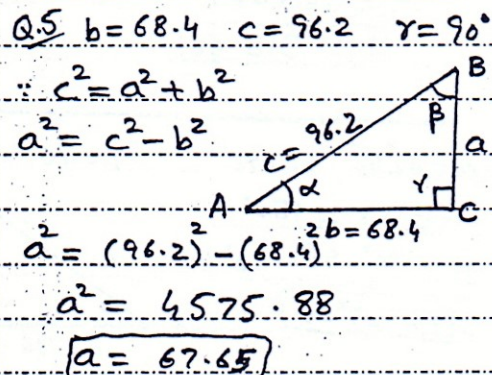 Q.5 b = 68.4 c = 96.2 γ = 90°
∵ c² = a² + b²
a² = c² - b²
B
β
c = 96.2
a
α
γ
A
C
b = 68.4
a² = (96.2)² - (68.4)²
a² = 4575.88
a = 67.65